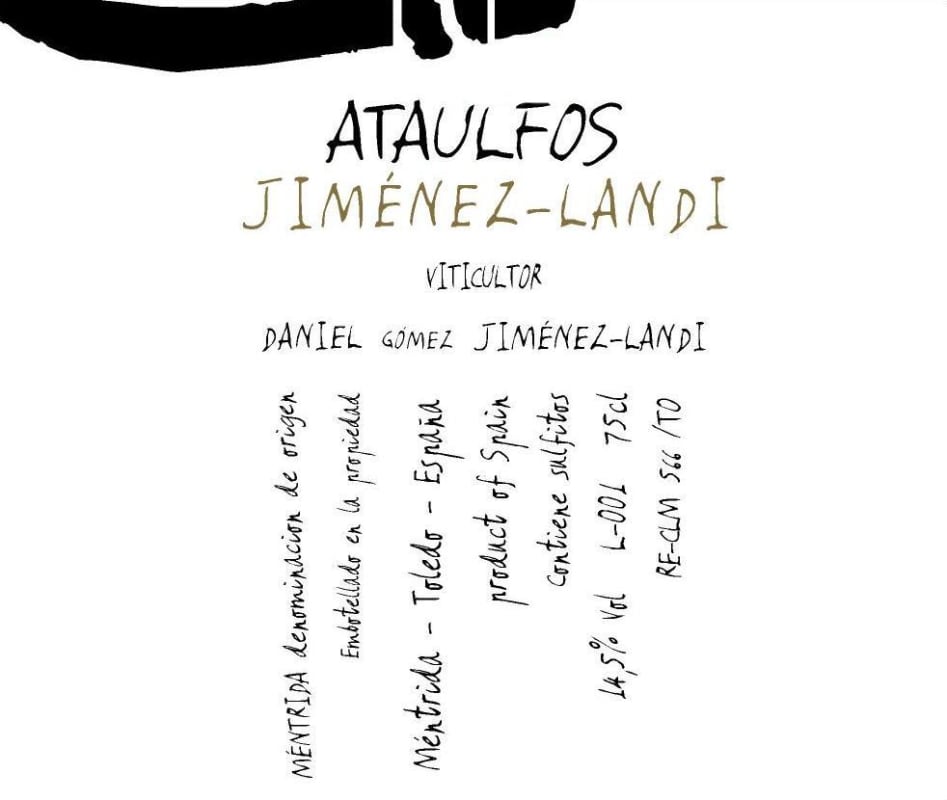 ATAULFOS
JIMÉNEZ-LANDI
VITICULTOR
DANIEL GÓMEZ JIMÉNEZ-LANDI
MÉNTRIDA denominacion de origen
Embotellado en la propiedad
Méntrida - Toledo - España
product of Spain
Contiene sulfitos
14,5% Vol L-001 75cl
RE-CLM 566 /TO